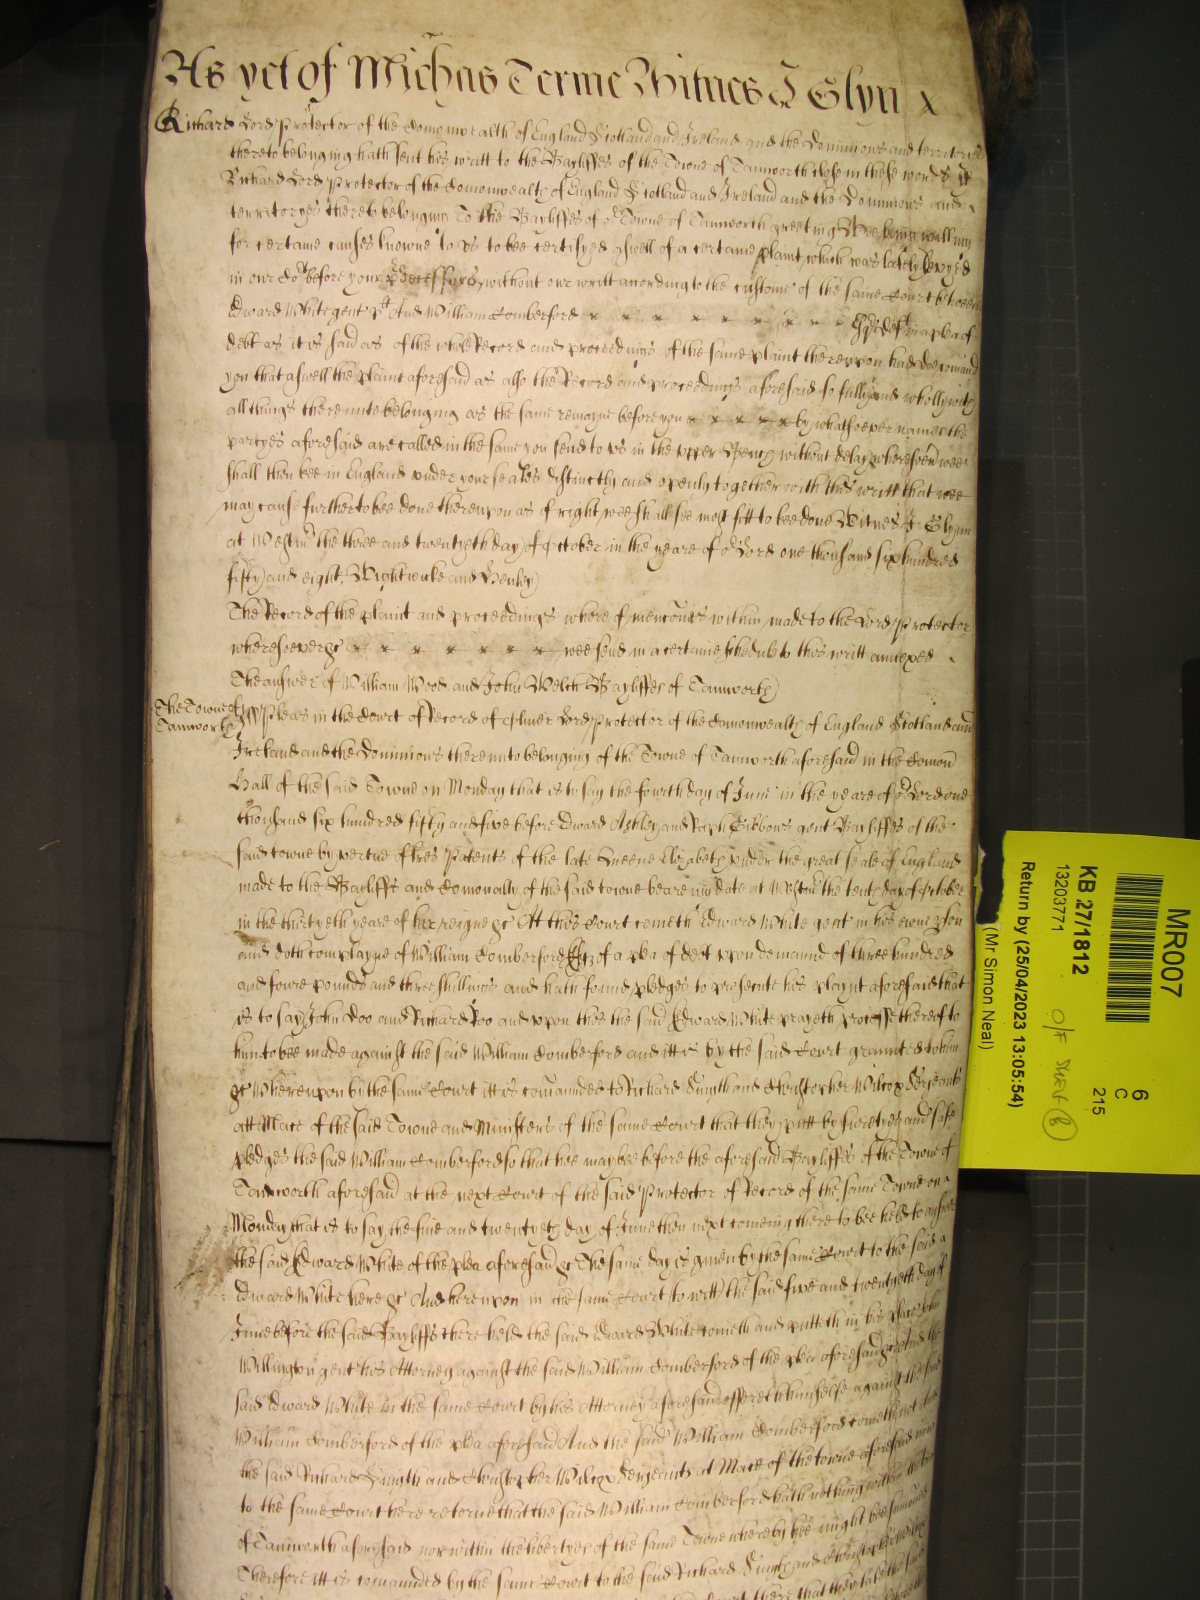 As yet of Michas Terme Witnes J Glyn x
Richard Lord Protector of the Comonwealth of England Scotland and Ireland and the Dominions and territories
thereto belonging hath sent his writt to the Bayliffes of the Towne of Tamworth close in these words ss
Richard Lord Protector of the Comonwealth of England Scotland and Ireland and the Dominions and
territoryes thereto belonging To the Bayliffes of or Towne of Tamworth greeting Wee being willing
for certaine causes knowne to us to bee certifyed aswell of a certaine plaint which was lately levyed
in our Cort before your predecessors without our writt according to the custome of the same Court betweene
Edward White gent plt And William Comberford x x x x x x x x x Esqr deft in a plea of
debt as it is said as of the whole Record and proceedings of the same plaint thereupon had Doe comand
you that aswell the plaint aforesaid as also the Record and proceedings aforesaid so fully and wholly with
all things thereunto belonging as the same remayne before you x x x x x by whatsoever names the
partyes aforesaid are called in the same you send to us in the upper Bench without delay wheresoevr wee
shall then bee in England under your seales distinctly and openly together with this writt that wee
may cause further to bee done thereupon as of right wee shall see most fitt to bee done Witnes J Glynn
at Westmr the three and twentyeth day of October in the yeare of or Lord one thousand six hundred
fifty and eight. Wightwicke and Henley
The Record of the plaint and proceedings whereof mencon is within made to the Lord Protector
wheresoever &c x x x x x x x wee send in a certaine schedule to this writt annexed
The answer of William Wood and John Welch Bayliffes of Tamworth
The Towne of
Tamworth
ss Pleas in the Court of Record of Oliver Lord Protector of the Comonwealth of England Scotland and
Ireland and the Dominions thereunto belonging of the Towne of Tamworth aforesaid in the Comon
Hall of the said Towne on Monday that is to say the fourth day of June in the yeare of or Lord one
thousand six hundred fifty and five before Edward Ashley and Raph Gibbons gent Bayliffes of the
said towne by vertue of lres Patents of the late Queene Elizabeth under the great seale of England
made to the Bayliffs and Comonalty of the said towne beareing date at Westmr the tenth day of October
in the thirtyeth yeare of her reigne &c Att this Court cometh Edward White gent in his owne pson
and doth complayne of William Comberford Esqr of a plea of debt upon demaund of three hundred
and fowre pounds and three shillings and hath found pledges to prosecute his playnt aforesaid that
is to say John Doo and Richard Roo and upon this the said Edward White prayeth processe thereof to
him to bee made against the said William Comberford and itt is by the said Court graunted to him
&c Whereupon by the same Court itt is comaunded to Richard and Christopher Wilcox Serjeants
att Mace of the said Towne and Ministers of the same Court that they putt by suretyes and safe
pledges the said William Comberford so that hee may bee before the aforesaid Bayliffs of the Towne of
Tamworth aforesaid at the next Court of the said Protector of Record of the same Towne on
Monday that is to say the five and twentyeth day of June then next comeing there to bee held to answer
the said Edward White of the plea aforesaid &c The same day is given by the same Court to the said
Edward White here &c And hereupon in the same Court to witt the said five and twentyeth day of
June before the said Bayliffs there held the said Edward White cometh and putteth in his place John
Willington gent his Attorney against the said William Comberford of the plea aforesaid &c And the
said Edward White in the same Court by his Attorney aforesaid offereth himselfe against the said
William Comberford of the plea aforesaid And the said William Comberford cometh not And
the said Richard and Christopher Wilcox Serjeants at Mace of the towne aforesaid now
to the same Court here retorne that the said William Comberford hath nothing within the towne
of Tamworth aforesaid nor within the libertyes of the same Towne whereby hee might bee summoned
Therefore itt is comaunded by the same Court to the said Richard and Christopher Wilcox
MR007
6
C
215
KB 27/1812
13203771
O/F
Return by (25/04/2023 13:05:54)
(Mr Simon Neal)